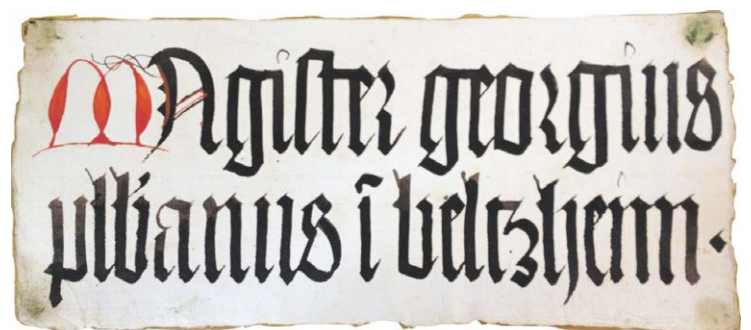 MAgister georgius
plbanus ī beltzheim.